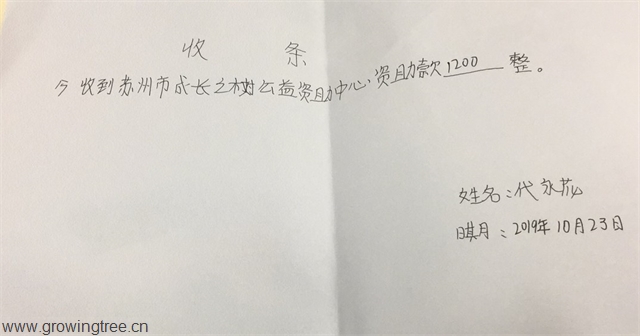 收 条
今收到苏州市成长之树公益资助中心资助款1200 整。
姓名：代永茂
日期：2019年10月23日
www.growingtree.cn